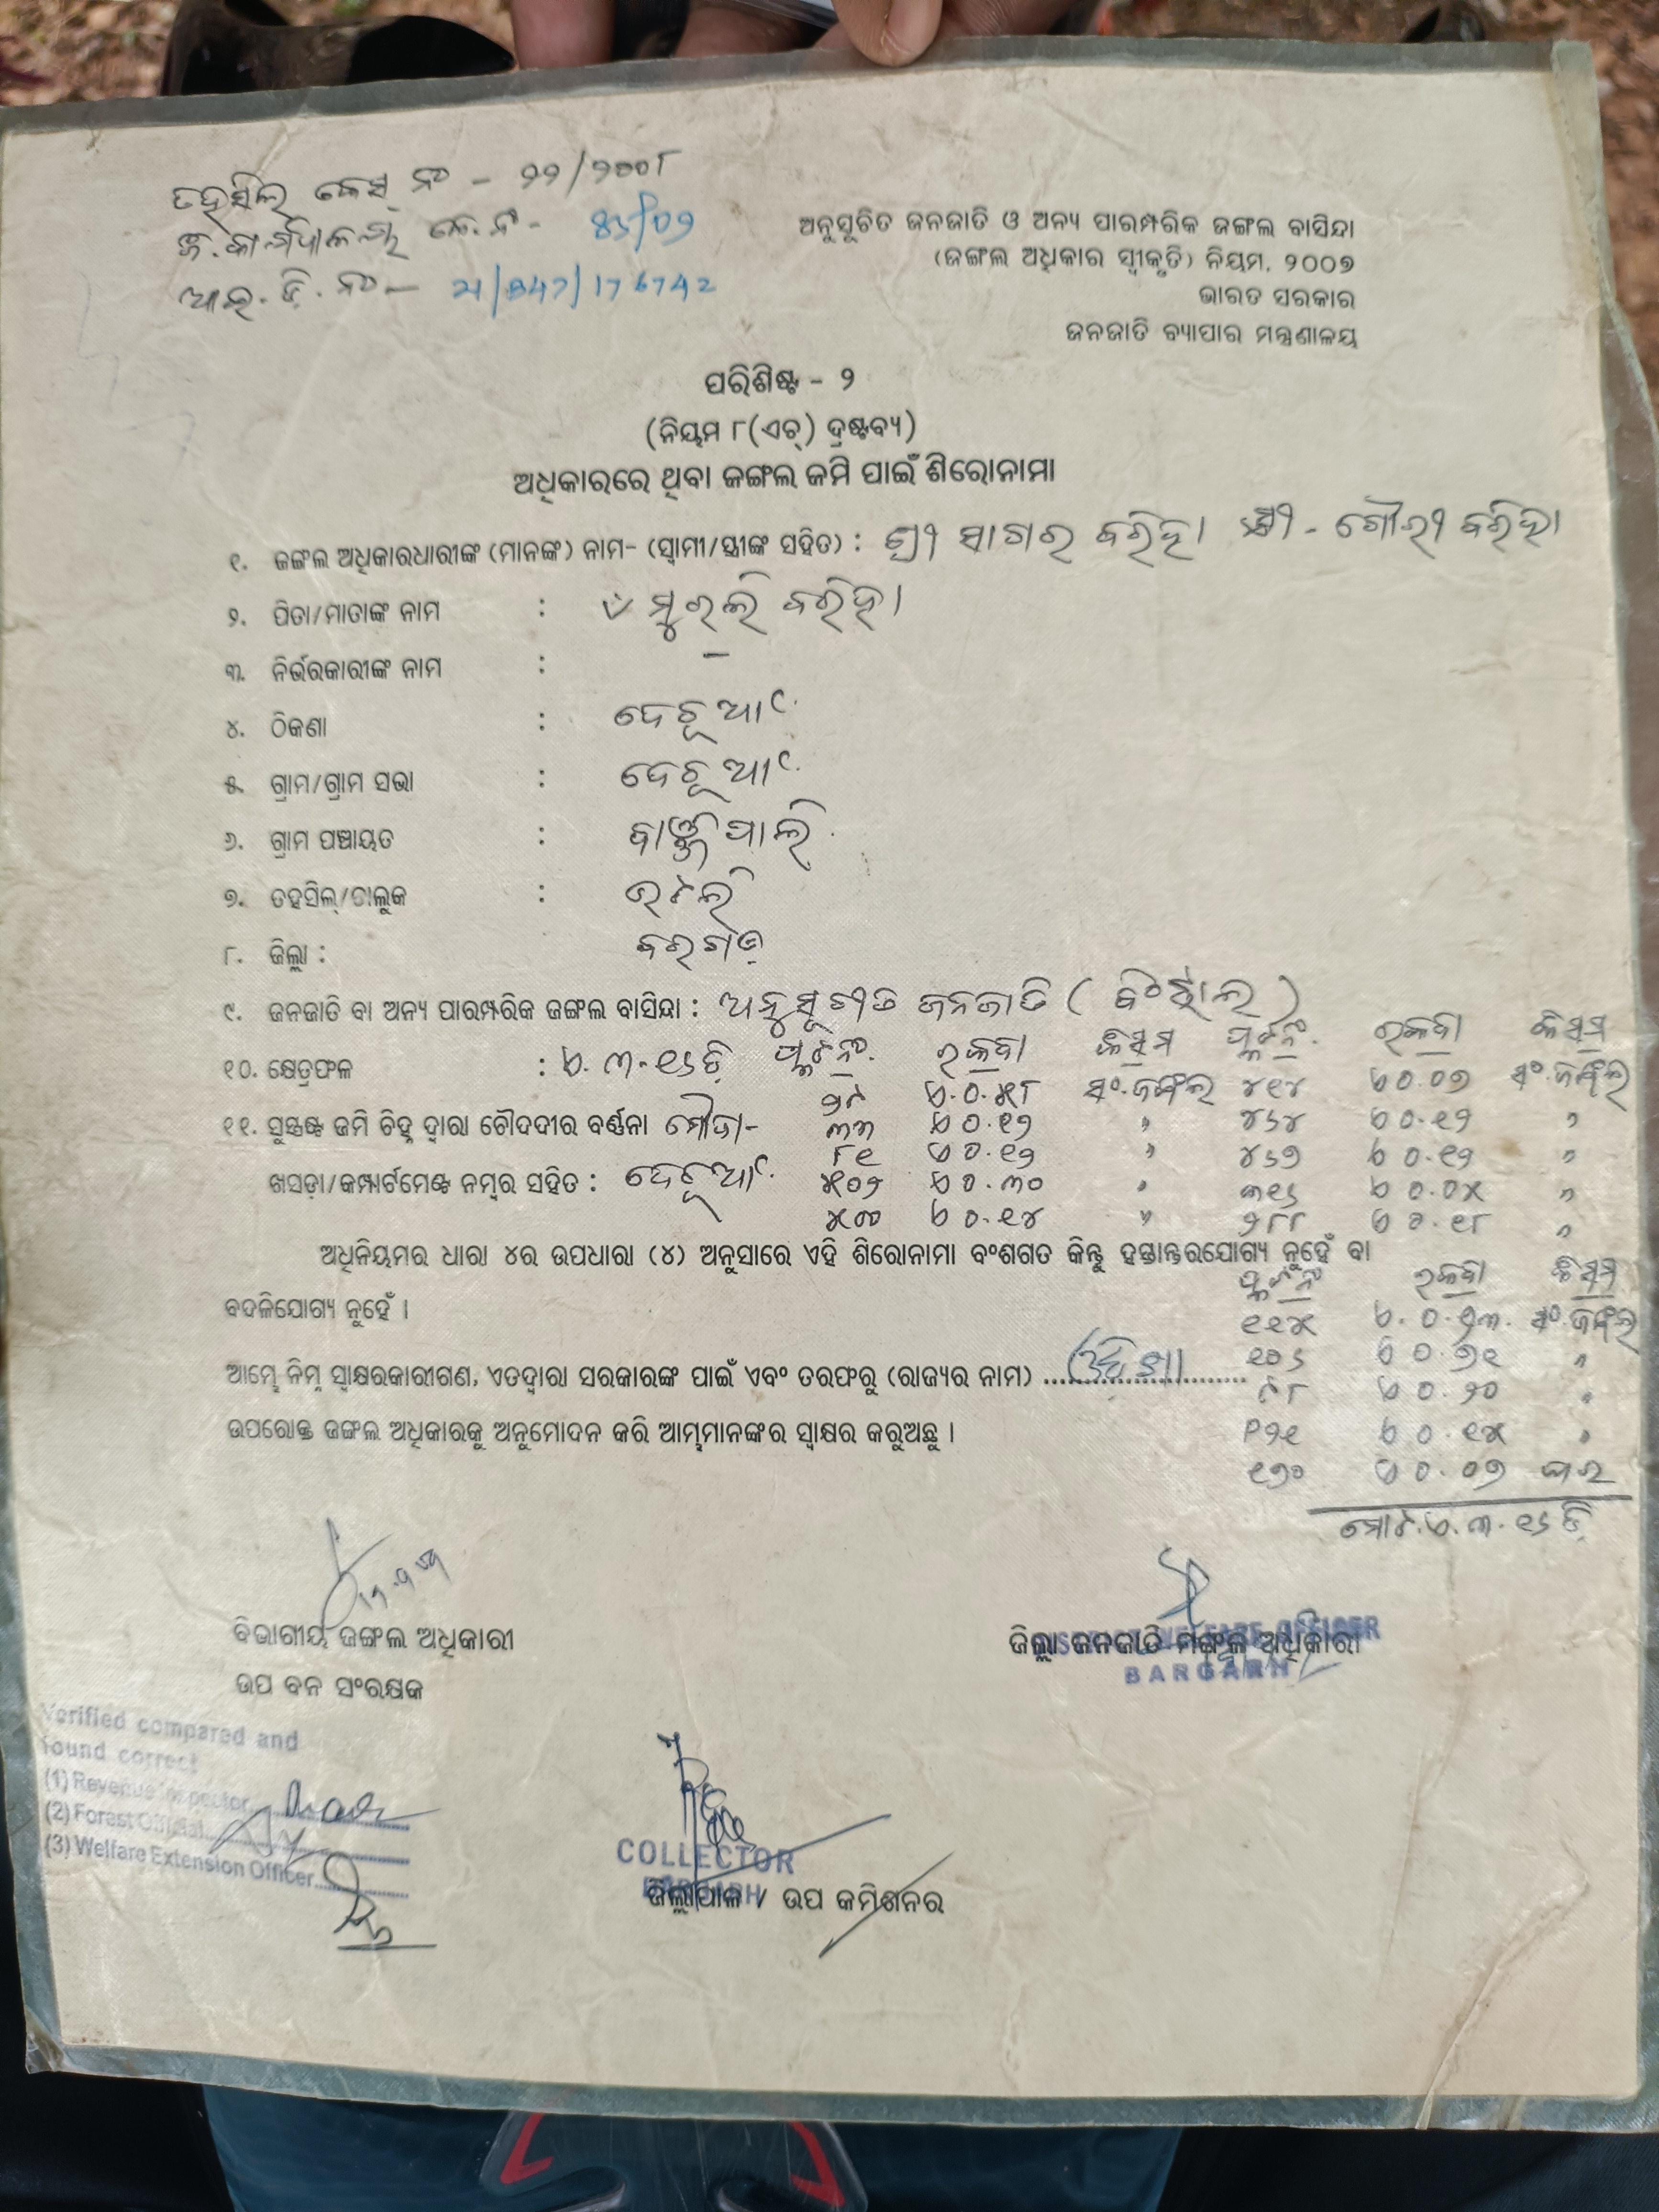 ତହସିଲ କେସ୍ ନଂ - ୨୨/୨୦୦୮
କେ.ନଂ -
ଆଇ.ଡି.ନଂ - 21/847/176742
ଅନୁସୂଚିତ ଜନଜାତି ଓ ଅନ୍ୟ ପାରମ୍ପରିକ ଜଙ୍ଗଲ ବାସିନ୍ଦା
(ଜଙ୍ଗଲ ଅଧିକାର ସ୍ୱୀକୃତି) ନିୟମ, ୨୦୦୭
ଭାରତ ସରକାର
ଜନଜାତି ବ୍ୟାପାର ମନ୍ତ୍ରଣାଳୟ
ପରିଶିଷ୍ଟ - ୨
(ନିୟମ ୮(ଏଚ୍) ଦ୍ରଷ୍ଟବ୍ୟ)
ଅଧିକାରରେ ଥିବା ଜଙ୍ଗଲ ଜମି ପାଇଁ ଶିରୋନାମା
୧. ଜଙ୍ଗଲ ଅଧିକାରଧାରୀଙ୍କ (ମାନଙ୍କ) ନାମ- (ସ୍ୱାମୀ/ସ୍ତ୍ରୀଙ୍କ ସହିତ) : ଶ୍ରୀ ସାଗର ବରିହା ସ୍ତ୍ରୀ - ଗୌରୀ ବରିହା
୨. ପିତା/ମାତାଙ୍କ ନାମ : ମୁରଲି ବରିହା
୩. ନିର୍ଭରକାରୀଙ୍କ ନାମ : —
୪. ଠିକଣା : ଦେଚୂଆଁ
୫. ଗ୍ରାମ/ଗ୍ରାମ ସଭା : ଦେଚୂଆଁ
୬. ଗ୍ରାମ ପଞ୍ଚାୟତ :
୭. ତହସିଲ୍/ତାଲୁକ : ଭଟଲି
୮. ଜିଲ୍ଲା : ବରଗଡ଼
୯. ଜନଜାତି ବା ଅନ୍ୟ ପାରମ୍ପରିକ ଜଙ୍ଗଲ ବାସିନ୍ଦା : ଅନୁସୂଚୀତ ଜନଜାତି (ବିଂଝାଲ)
୧୦. କ୍ଷେତ୍ରଫଳ : ଏ. ୩.୧୬ ଡି ପ୍ଲଟନଂ. ରକବା କିସମ ପ୍ଲଟନଂ. ରକବା କିସମ
୨୯ ଏ.୦.୫୮ ସଂ.ଜଙ୍ଗଲ ୪୧୪ ଏ ୦.୦୭ ସଂ.ଜଙ୍ଗଲ
୧୧. ସୁସ୍ପଷ୍ଟ ଜମି ଚିହ୍ନ ଦ୍ୱାରା ଚୌଦଦୀର ବର୍ଣ୍ଣନା ମୌଜା- ୩୩ ଏ ୦.୧୨ " ୪୬୪ ଏ ୦.୧୨ "
୮୧ ଏ ୦.୧୨ " ୪୬୭ ଏ ୦.୧୨ "
ଖସଡ଼ା/କମ୍ପାର୍ଟମେଣ୍ଟ ନମ୍ବର ସହିତ : ଦେଚୂଆଁ ୫୦୨ ଏ ୦.୩୦ " ୩୧୬ ଏ ୦.୦୫ "
୫୦୦ ଏ ୦.୧୪ " ୨୮୮ ଏ ୦.୧୮ "
ଅଧିନିୟମର ଧାରା ୪ର ଉପଧାରା (୪) ଅନୁସାରେ ଏହି ଶିରୋନାମା ବଂଶଗତ କିନ୍ତୁ ହସ୍ତାନ୍ତରଯୋଗ୍ୟ ନୁହେଁ ବା
ବଦଳିଯୋଗ୍ୟ ନୁହେଁ ।
ପ୍ଲଟନଂ ରକବା କିସମ
୧୧୫ ଏ. ୦.୨୩. ସଂ.ଜଙ୍ଗଲ
୧୦୬ ଏ ୦.୭୧ "
ଆମ୍ଭେ ନିମ୍ନ ସ୍ୱାକ୍ଷରକାରୀଗଣ, ଏତଦ୍ୱାରା ସରକାରଙ୍କ ପାଇଁ ଏବଂ ତରଫରୁ (ରାଜ୍ୟର ନାମ) ଓଡ଼ିଶା
୯୮ ଏ ୦.୨୦ "
ଉପରୋକ୍ତ ଜଙ୍ଗଲ ଅଧିକାରକୁ ଅନୁମୋଦନ କରି ଆମ୍ଭମାନଙ୍କର ସ୍ୱାକ୍ଷର କରୁଅଛୁ ।
ଏ ୦.୧୫ "
୧୭୦ ଏ ୦.୦୭ ଘର
ମୋଟ.ଏ.୩.୧୬ ଡି
ବିଭାଗୀୟ ଜଙ୍ଗଲ ଅଧିକାରୀ
ଉପ ବନ ସଂରକ୍ଷକ
ଜିଲ୍ଲା ଜନଜାତି ମଙ୍ଗଳ ଅଧିକାରୀ
DISTRICT WELFARE OFFICER
BARGARH
Verified compared and
found correct
(1) Revenue Inspector
(2) Forest Official
(3) Welfare Extension Officer
COLLECTOR
BARGARH
ଜିଲ୍ଲାପାଳ / ଉପ କମିଶନର